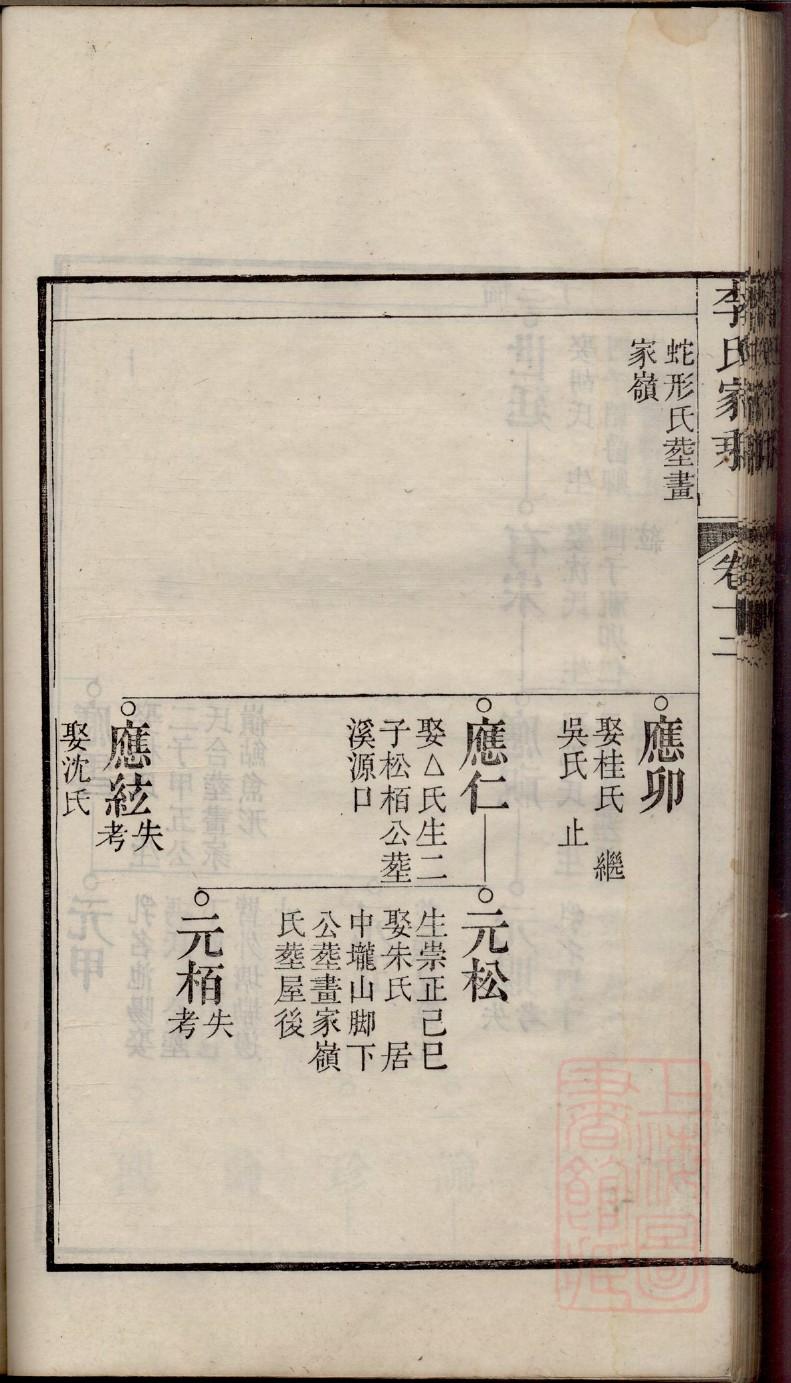 李氏家乘
卷十二
蛇形氏塟畫
家嶺
應卯
娶桂氏　繼
吳氏　止
應仁
娶△氏生二
子松栢公塟
溪源口
元松
生崇正己巳
娶朱氏　居
中壠山脚下
公塟畫家嶺
氏塟屋後
元栢
失
考
應絃
失
考
娶沈氏
上海圖
書館藏